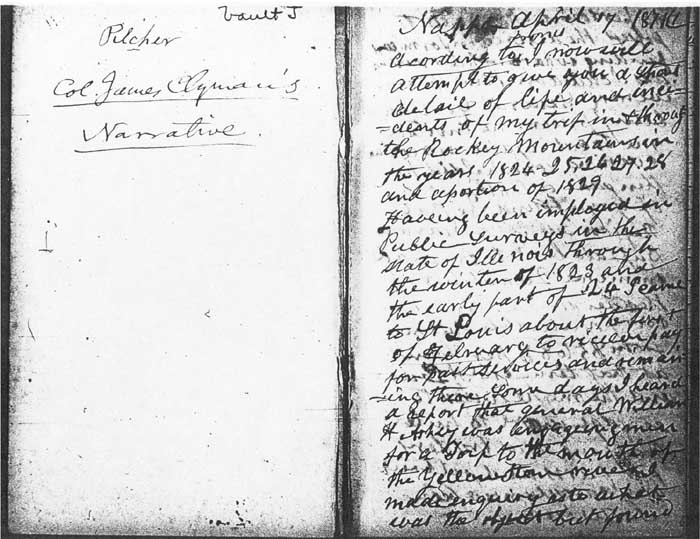 Vault J
Pilcher
Col. James Clyman's
Narrative.
Nappa April 17 1871
promis
Acording to I now will
attempt to give you a short
detail of life and inci-
=dents of my trip in & through
the Rockey Mountains in
the years 1824-25, 26 27. 28
and aportion of 1829
Haveing been imployed in
Public Surveys in the
state of Illinois through
the winter of 1823 and
the early part of 24 I came
to St Louis about the first
of February to receive pay
for past services and reman
=ing there Some days I heard
a report that general William
H Ashley was engageing men
for a Trip to the mouth of
the Yellowstone river I
made enquiry as to what
was the object but found